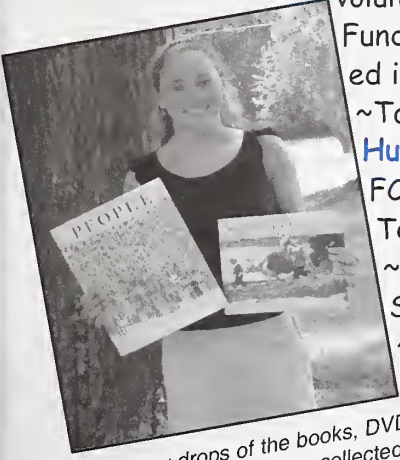 Func
ed i
~To
Hu
FO
To
~
S
~
PEOPLE
drops of the books, DVD
collected